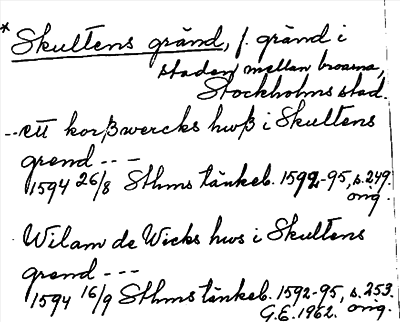 * Skultens gränd, f. gränd i
staden mellan broarna,
Stockholms stad.
--ett korßwercks hwß i Skultens
grend - - -
1594 26/8 Sthms tänkeb. 1592-95, s. 249.
orig.
Wilam de Wicks hws i Skultens
grend - - -
1594 16/9 Sthms tänkeb. 1592-95, s. 253.
G.E. 1962. orig.